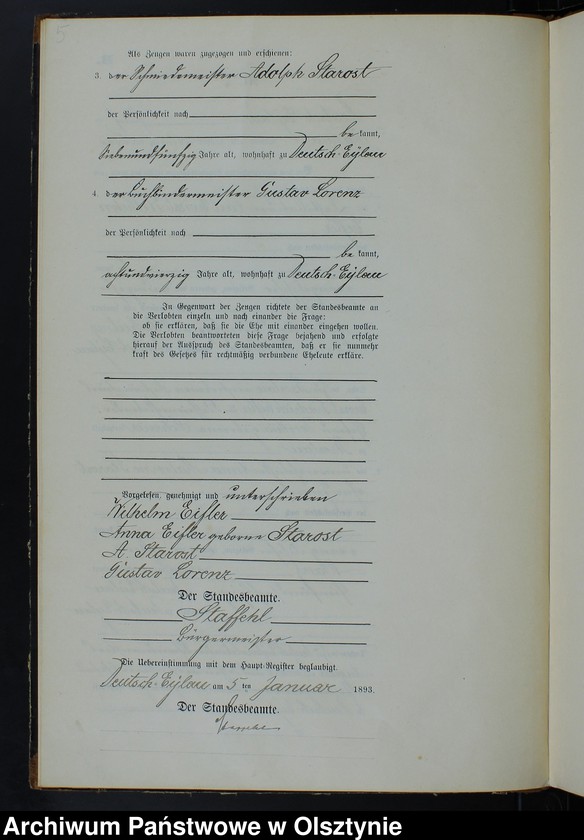 Als Zeugen waren zugezogen und erschienen:
3. der Schmiedemeister Adolph Starost
der Persönlichkeit nach
bekannt,
siebenundfünfzig Jahre alt, wohnhaft zu Deutsch-Eylau
4. der Buchbindermeister Gustav Lorenz
der Persönlichkeit nach
bekannt,
achtundvierzig Jahre alt, wohnhaft zu Deutsch-Eylau
In Gegenwart der Zeugen richtete der Standesbeamte an
die Verlobten einzeln und nach einander die Frage:
ob sie erklären, daß sie die Ehe mit einander eingehen wollen.
Die Verlobten beantworteten diese Frage bejahend und erfolgte
hierauf der Ausspruch des Standesbeamten, daß er sie nunmehr
kraft des Gesetzes für rechtmäßig verbundene Eheleute erkläre.
Vorgelesen, genehmigt und unterschrieben
Wilhelm Eifler
Anna Eifler geborne Starost
A. Starost
Gustav Lorenz
Der Standesbeamte.
Staffehl
Bürgermeister
Die Uebereinstimmung mit dem Haupt-Register beglaubigt.
Deutsch-Eylau am 5ten Januar 1893.
Der Standesbeamte.
Archiwum Państwowe w Olsztynie